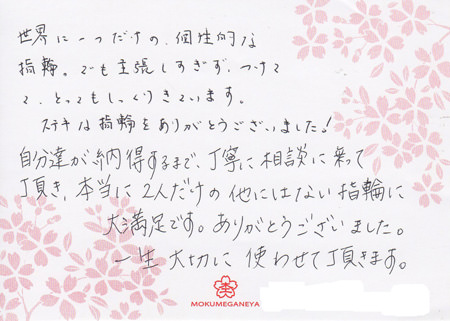 世界に一つだけの、個性的な
指輪。でも主張しすぎず、つけて
て、とってもしっくりきています。
ステキな指輪をありがとうございました!
自分達が納得するまで、丁寧に相談に乗って
頂き、本当に2人だけの他にはない指輪に
大満足です。ありがとうございました。
一生大切に使わせて頂きます。
MOKUMEGANEYA